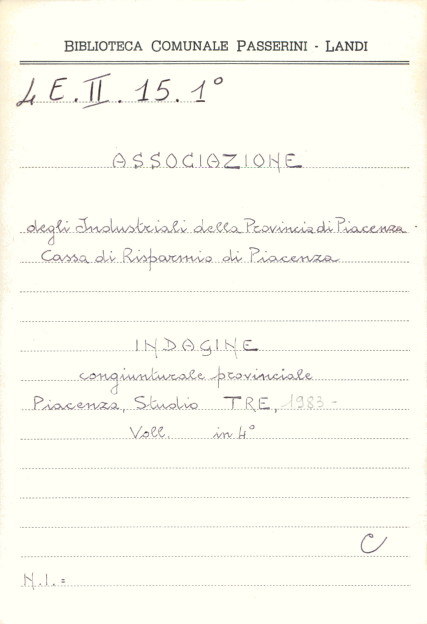 BIBLIOTECA COMUNALE PASSERINI - LANDI
4 E. II. 15. 1°
ASSOCIAZIONE
degli Industriali della Provincia di Piacenza.
Cassa di Risparmio di Piacenza
INDAGINE
congiunturale provinciale
Piacenza, Studio TRE, 1983-
Voll. in 4°
C
N.I.=